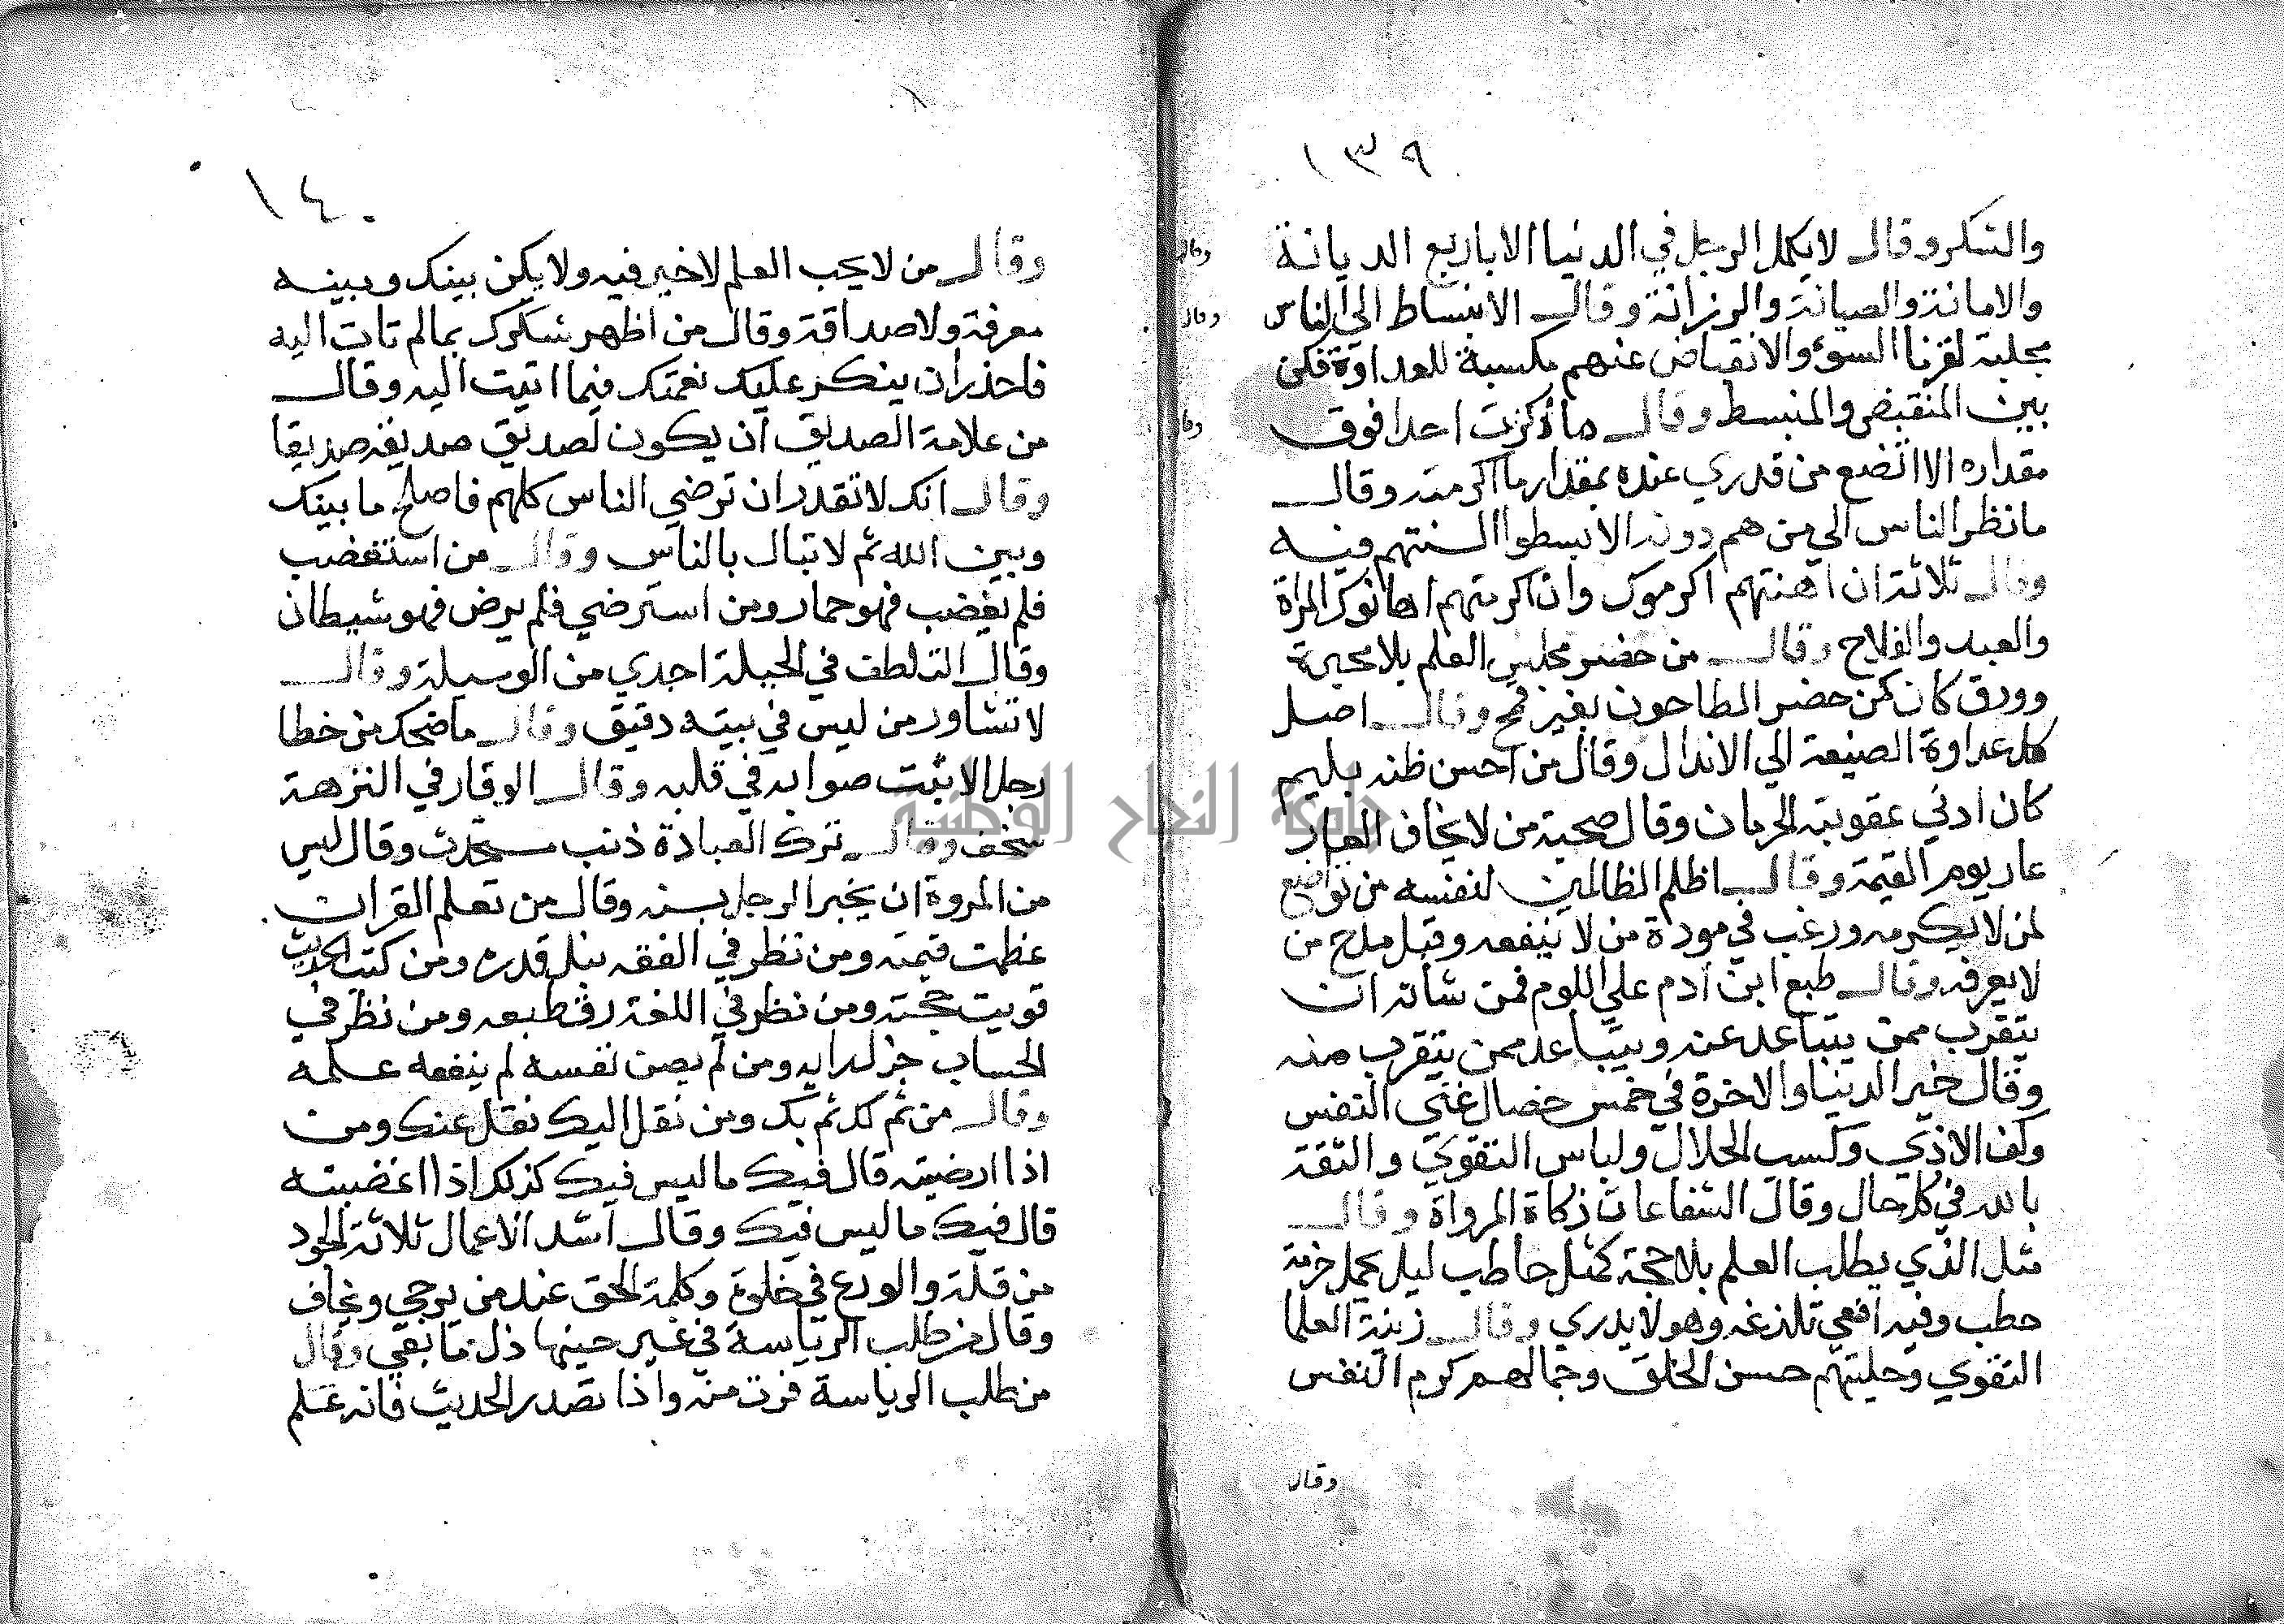 ١٣٩
والشكر وقال لا يكمل الرجل في الدنيا الا باربع الديانة
والامانة والصيانة والرزانة وقال الانبساط الي الناس
مجلبة لقرنا السوء والانقباض عنهم مكسبة للعداوة فكن
بين المنقبض والمنبسط وقال ما اكرمت احدا فوق
مقداره الا اتضع من قدري عنده بمقدار ما اكرمته وقال
ما نظر الناس الي من هم دونه الا بسطوا السنتهم فيه
وقال ثلاثة ان اهنتهم اكرموك وان اكرمتهم اهانوك المراة
والعبد والفلاح وقال من حضر مجلس العلم بلا محبرة
وورق كان كمن حضر الطاحون بغير قمح وقال اصل
كل عداوة الصنيعة الي الانذال وقال من احسن ظنه بليم
كان ادني عقوبته الحرمان وقال صحبة من لا يخاف العار
عار يوم القيمة وقال اظلم الظالمين لنفسه من تواضع
لمن لا يكرمه ورغب في مودة من لا ينفعه وقبل مدح من
لا يعرفه وقال طبع ابن ادم علي اللوم فمن شانه ان
يتقرب ممن يتباعد عنه ويتباعد ممن يتقرب منه
وقال خير الدنيا والاخرة في خمس خصال غني النفس
وكف الاذي وكسب الحلال ولباس التقوي والثقة
بالله في كل حال وقال الشفاعات زكاة المرواة وقال
مثل الذي يطلب العلم بلا حجة كمثل حاطب ليل يحمل حزمة
حطب وفيه افعي تلدغه وهو لا يدري وقال زينة العلما
التقوي وحليتهم حسن الخلق وجمالهم كرم النفس
وقال
وقال
وقال
وقا
١٤٠
وقال من لا يحب العلم لا خير فيه ولا يكن بينك وبينه
معرفة ولا صداقة وقال من اظهر شكرك بما لم تات اليه
فاحذر ان ينكر عليك نعمتك فيما اتيت اليه وقال
من علامة الصديق ان يكون لصديق صديقه صديقا
وقال انك لا تقدر ان ترضي الناس كلهم فاصلح ما بينك
وبين الله ثم لا تبال بالناس وقال من استغضب
فلم يغضب فهو حمار ومن استرضي فلم يرض فهو شيطان
وقال التلطف في الحيلة اجدي من الوسيلة وقال
لا تشاور من ليس في بيته دقيق وقال ما ضحك من خطا
رجل الا ثبت صوابه في قلبه وقال الوقار في النزهة
سخف وقال ترك العبادة ذنب مستحدث وقال ليس
من المروة ان يخبر الرجل بسنه وقال من تعلم القران
عظمت قيمته ومن نظر في الفقه نبل قدره ومن كتب الحديث
قويت حجته ومن نظر في اللغة رق طبعه ومن نظر في
الحساب جزل رايه ومن لم يصن نفسه لم ينفعه علمه
وقال من نم لك نم بك ومن نقل اليك نقل عنك ومن
اذا ارضيته قال فيك ما ليس فيك كذلك اذا اغضبته
قال فيك ما ليس فيك وقال اشد الاعمال ثلاثة الجود
من قلة والورع في خلوة وكلمة الحق عند من يرجي ويخاف
وقال من طلب الرياسة في غير حينها ذل ما بقي وقال
من طلب الرياسة فرت منه واذا تصدر الحديث فاته علم
جامعة النجاح الوطنية